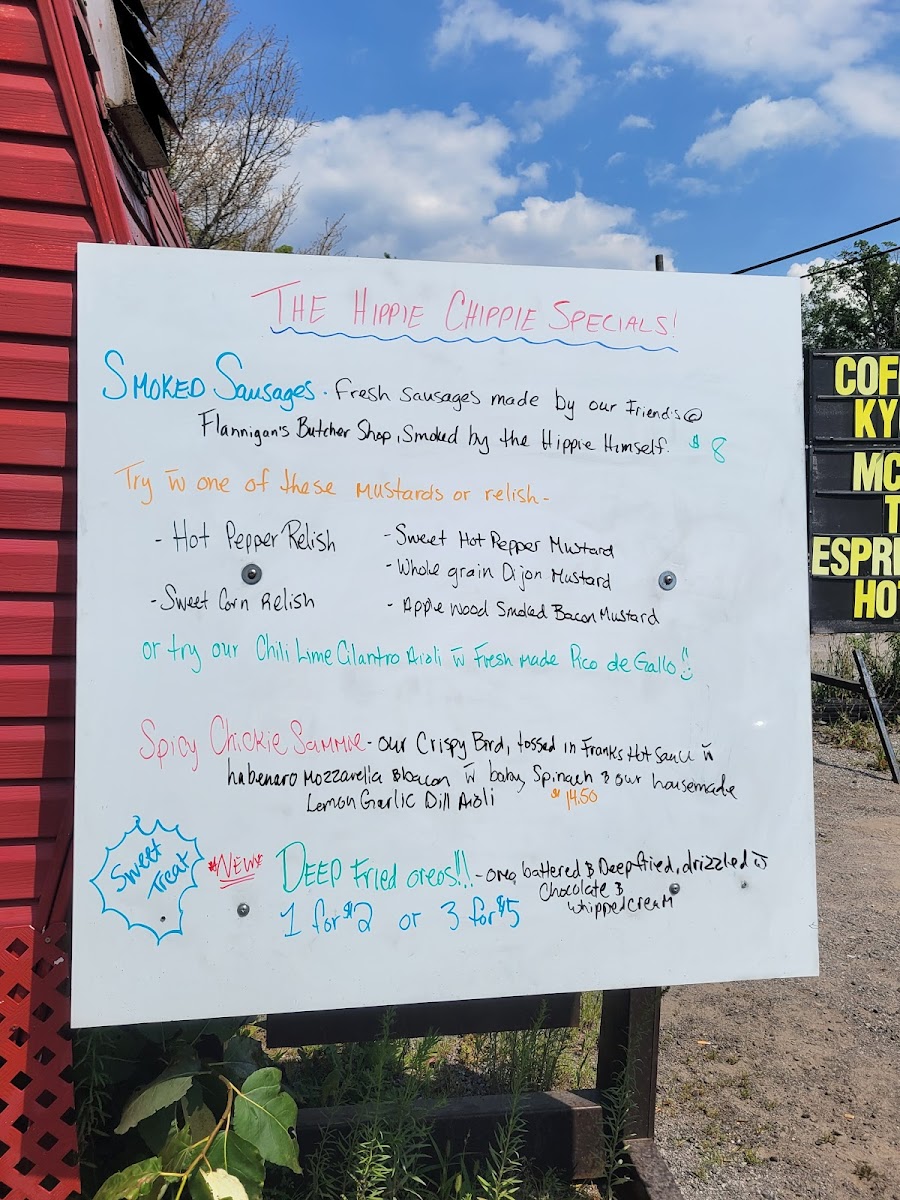 THE HIPPIE CHIPPIE SPECIALS!
SMOKED Sausages - Fresh Sausages made by our Friends @
Flannigan's Butcher Shop, Smoked by the Hippie Himself. $8
Try w̄ one of these mustards or relish -
- Hot Pepper Relish
- Sweet Corn Relish
- Sweet Hot Pepper Mustard
- Whole grain Dijon Mustard
- Apple Wood Smoked Bacon Mustard
or try our Chili Lime Cilantro Aioli w̄ Fresh made Pico de Gallo!
Spicy Chickie Sammie - our Crispy Bird, tossed in Franks Hot Sauce w̄
habenaro Mozzarella & bacon w̄ baby Spinach & our housemade
Lemon Garlic Dill Aioli $14.50
Sweet
Treat
*NEW*
DEEP Fried oreos!! - oreo battered & Deep fried, drizzled w̄
Chocolate &
whipped cream
1 for $2 or 3 for $5
COF
KY
MC
T
ESPRE
HO